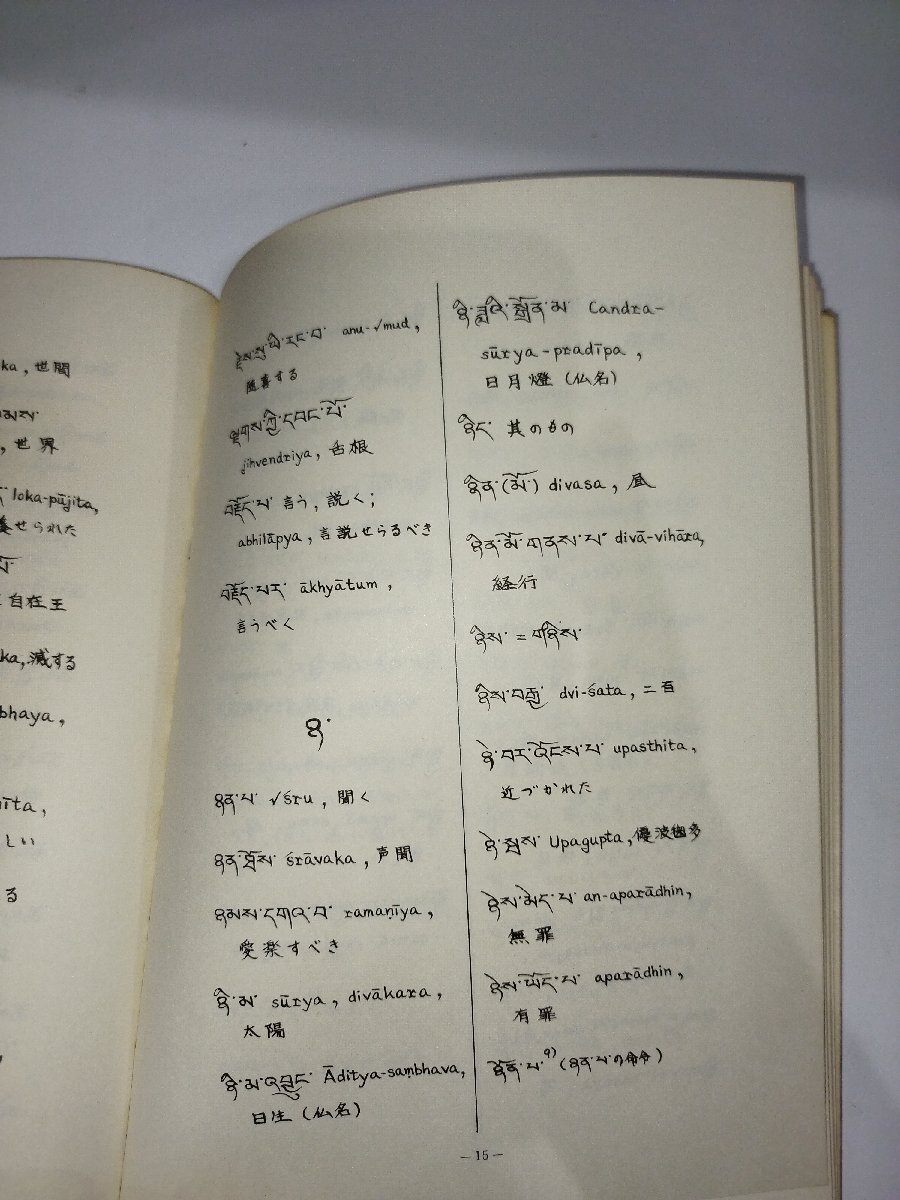 ka, 世間
, 世界
loka-pūjita,
せられた
自在王
ka, 滅する
bhaya,
nīta,
しい
る
རྗེས་སུ་ཡི་རང་བ་ anu-√mud,
随喜する
ལྗགས་ཀྱི་དབང་པོ་
jihvendriya, 舌根
བརྗོད་པ་ 言う, 説く;
abhilāpya, 言説せらるべき
བརྗོད་པར་ ākhyātum,
言うべく
ཉ་
ཉན་པ་ √śru, 聞く
ཉན་ཐོས་ śrāvaka, 声聞
ཉམས་དགའ་བ་ ramaṇīya,
愛楽すべき
ཉི་མ་ sūrya, divākara,
太陽
ཉི་མ་འབྱུང་ Āditya-saṃbhava,
日生 (仏名)
ཉི་ཟླའི་སྒྲོན་མ་ Candra-
sūrya-pradīpa,
日月燈 (仏名)
ཉིད་ 其のもの
ཉིན་(མོ་) divasa, 昼
ཉིན་མོ་གནས་པ་ divā-vihāra,
経行
ཉིས་ = གཉིས་
ཉིས་བརྒྱ་ dvi-śata, 二百
ཉེ་བར་འོངས་པ་ upasthita,
近づかれた
ཉེ་སྦས་ Upagupta, 優波毱多
ཉེས་མེད་པ་ an-aparādhin,
無罪
ཉེས་ཡོད་པ་ aparādhin,
有罪
ཉོན་པ་ 9) (ཉན་པ་の命令)
— 15 —